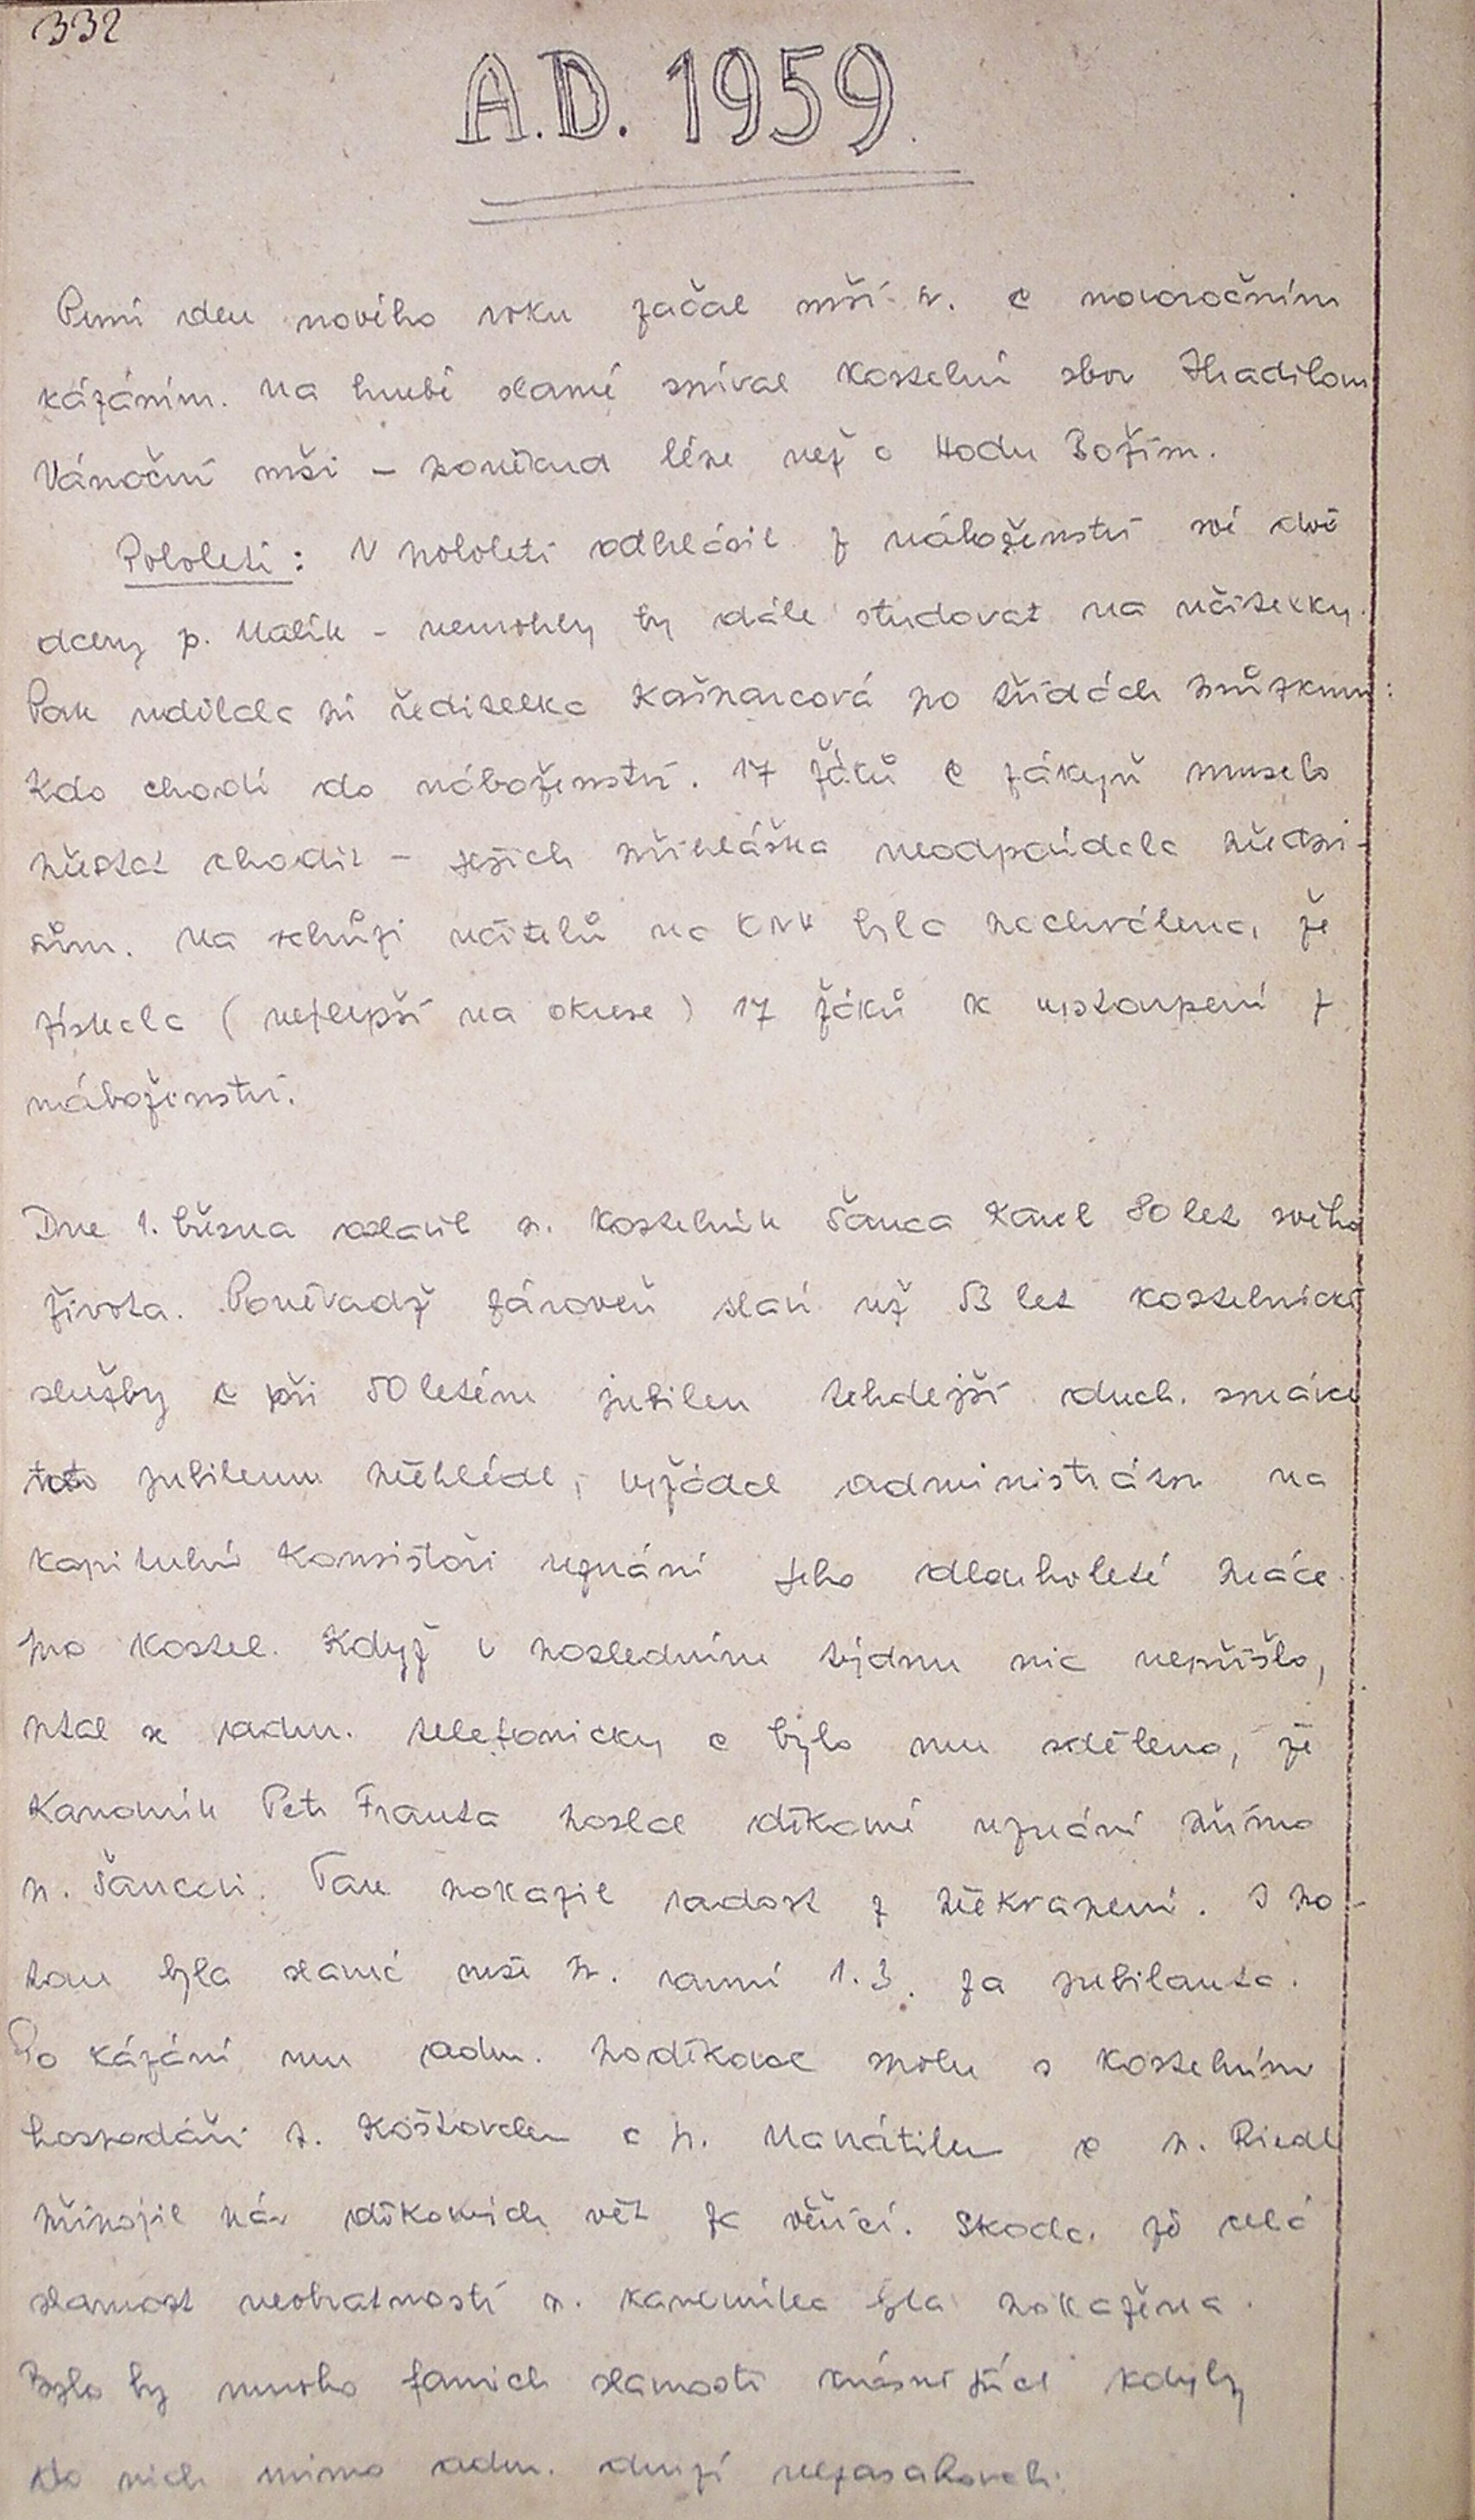 332
A.D. 1959.
První den nového roku začal mší sv. a novoročním
kázáním. Na hrubé slavně zpíval kostelní sbor Zhadilovu
Vánoční mši – poněkud lépe než o Hodu Božím.
Pololetí: V pololetí odhlásil z náboženství své dvě
dcery p. Malík – nemohly by dále studovat na učitelky.
Pak udělala si ředitelka Kašparcová po třídách průzkum:
Kdo chodí do náboženství. 17 žáků a žákyň muselo
přestat chodit – jejich přihláška neodpovídala předpi-
sům. Na schůzi učitelů na ONV byla pochválena, že
získala (nejlepší na okrese) 17 žáků k vystoupení z
náboženství.
Dne 1. března oslavil p. kostelník Šanca Karel 80 let svého
života. Poněvadž zároveň slaví už 53 let kostelnické
služby a při 50letém jubileu tehdejší duch. správce
toto jubileum přehlédl, vyžádal administrátor na
kapitulní Konsistoři uznání jeho dlouholeté práce
pro kostel. Když v posledním týdnu nic nepřišlo,
ptal se adm. telefonicky a bylo mu sděleno, že
Kanovník Petr Franta poslal děkovné uznání přímo
p. Šancovi. Tak pokazil radost z překvapení. I po-
tom byla slavná mše sv. ranní 1.3. za jubilanta.
Po kázání mu adm. poděkoval spolu s kostelním
hospodáři p. Košťovalem a p. Navrátilem a p. Riedl
připojil pár děkovných vět za věřící. Škoda, že celá
slavnost neobratností p. kanovníka byla pokažena.
Bylo by mnoho farních slavností krásnějších kdyby
do nich mimo adm. druzí nezasahovali.